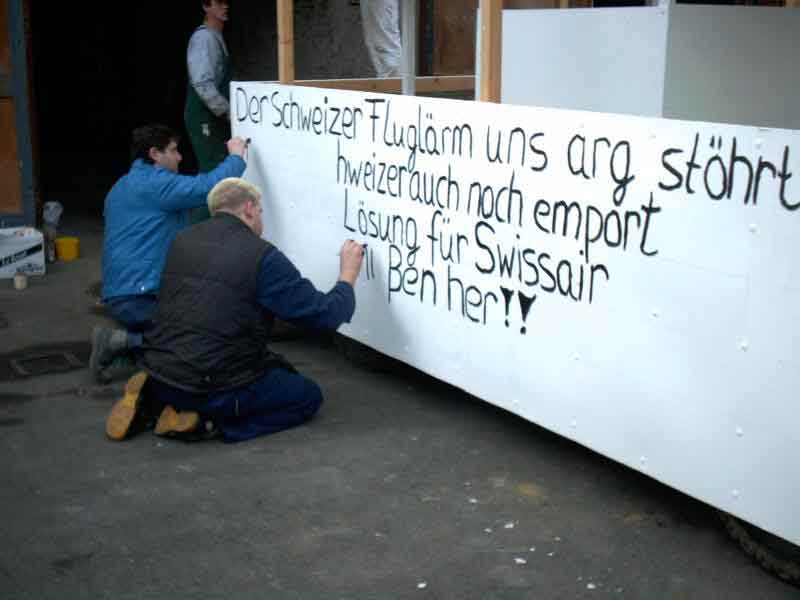 Der Schweizer Fluglärm uns arg stöhrt
hweizer auch noch emport
Lösung für Swissair
Ben her!!